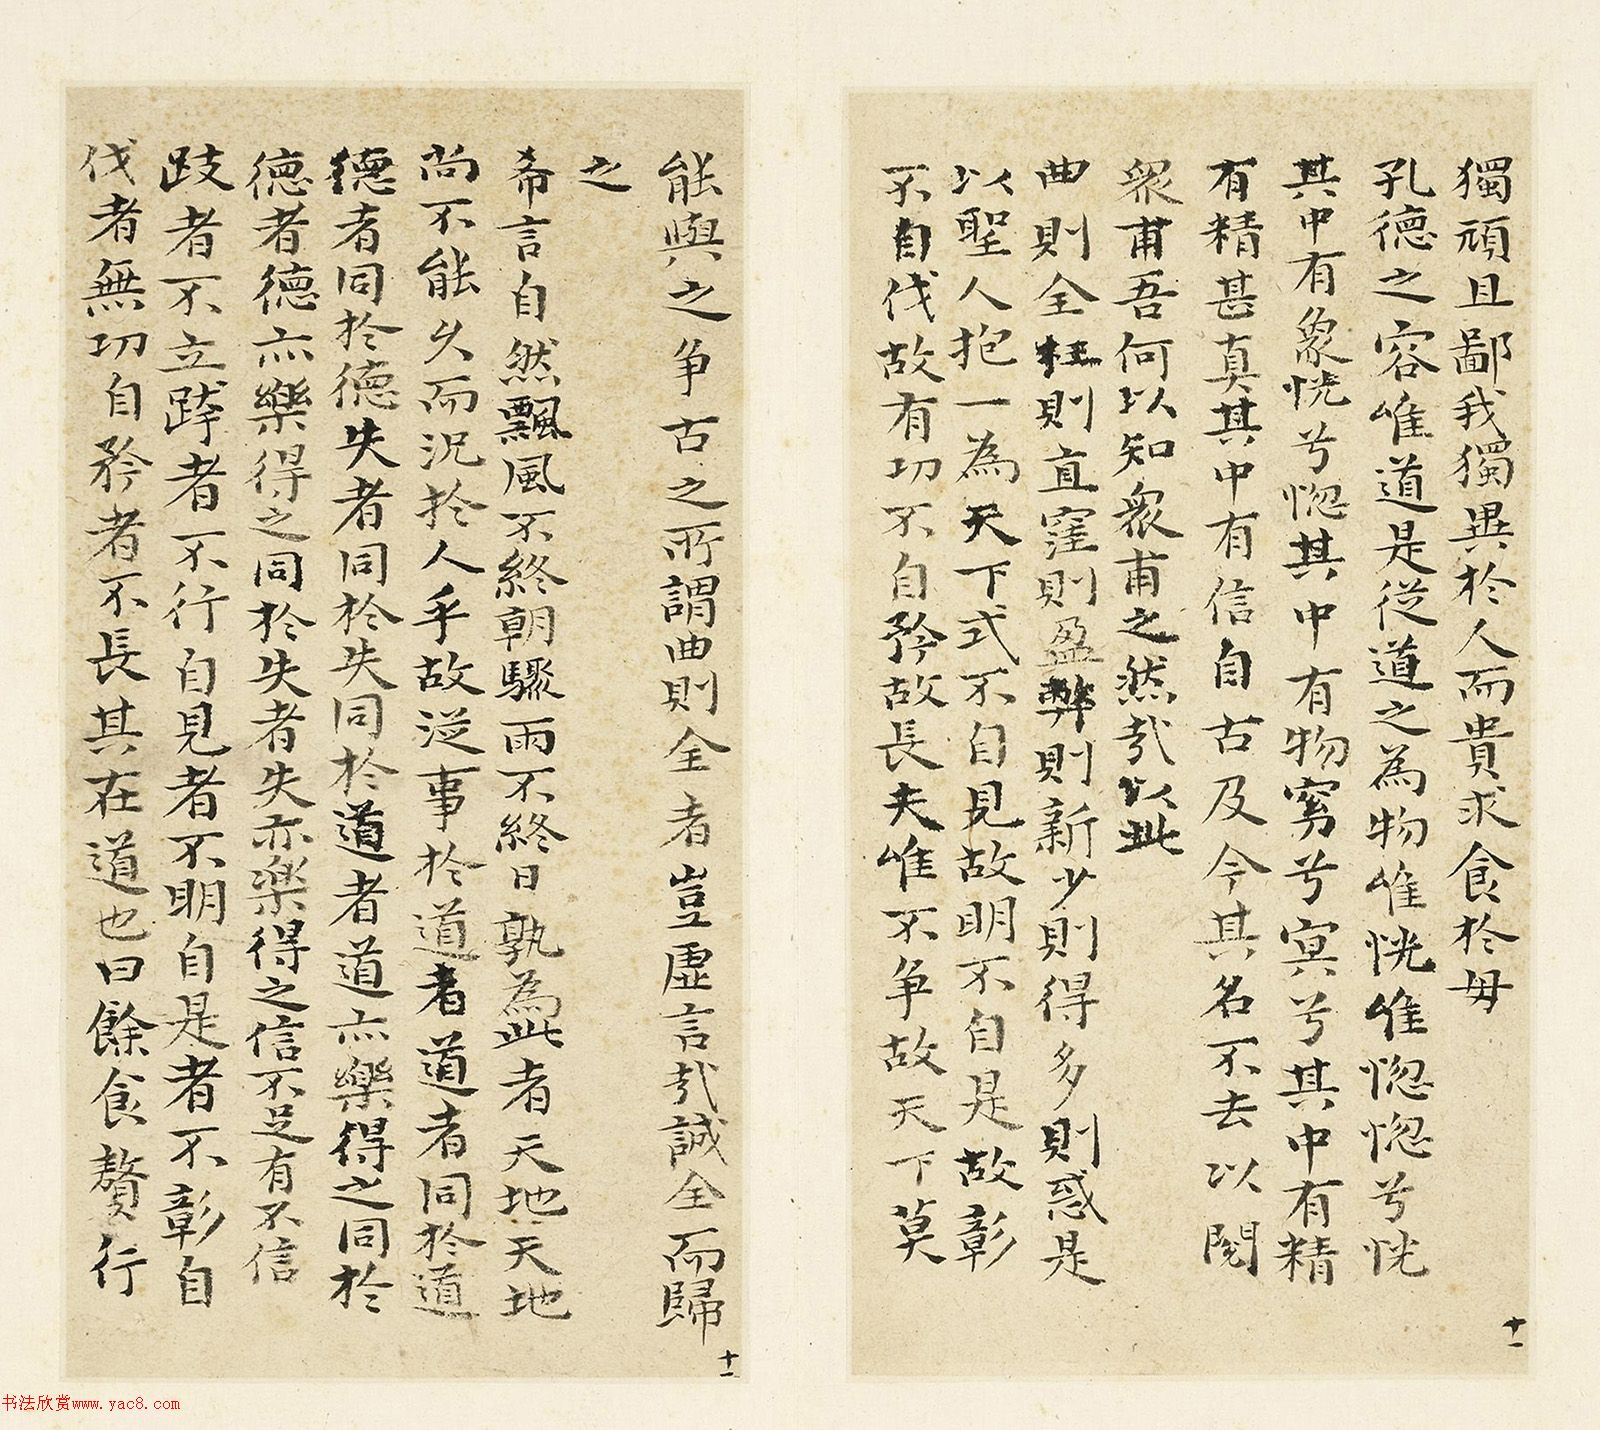 獨頑且鄙我獨異於人而貴求食於母
孔德之容唯道是從道之為物唯恍唯惚惚兮恍
其中有象恍兮惚其中有物窈兮冥兮其中有精
有精甚真其中有信自古及今其名不去以閱
衆甫吾何以知衆甫之然哉以此
曲則全枉則直窪則盈弊則新少則得多則惑是
以聖人抱一為天下式不自見故明不自是故彰
不自伐故有功不自矜故長夫唯不争故天下莫
十一
能與之争古之所謂曲則全者豈虛言哉誠全而歸
之
希言自然飄風不終朝驟雨不終日孰為此者天地天地
尚不能久而況於人乎故從事於道者道者同於道
德者同於德失者同於失同於道者道亦樂得之同於
德者德亦樂得之同於失者失亦樂得之信不足有不信
跂者不立跨者不行自見者不明自是者不彰自
伐者無功自矜者不長其在道也曰餘食贅行
十一
书法欣赏www.yac8.com